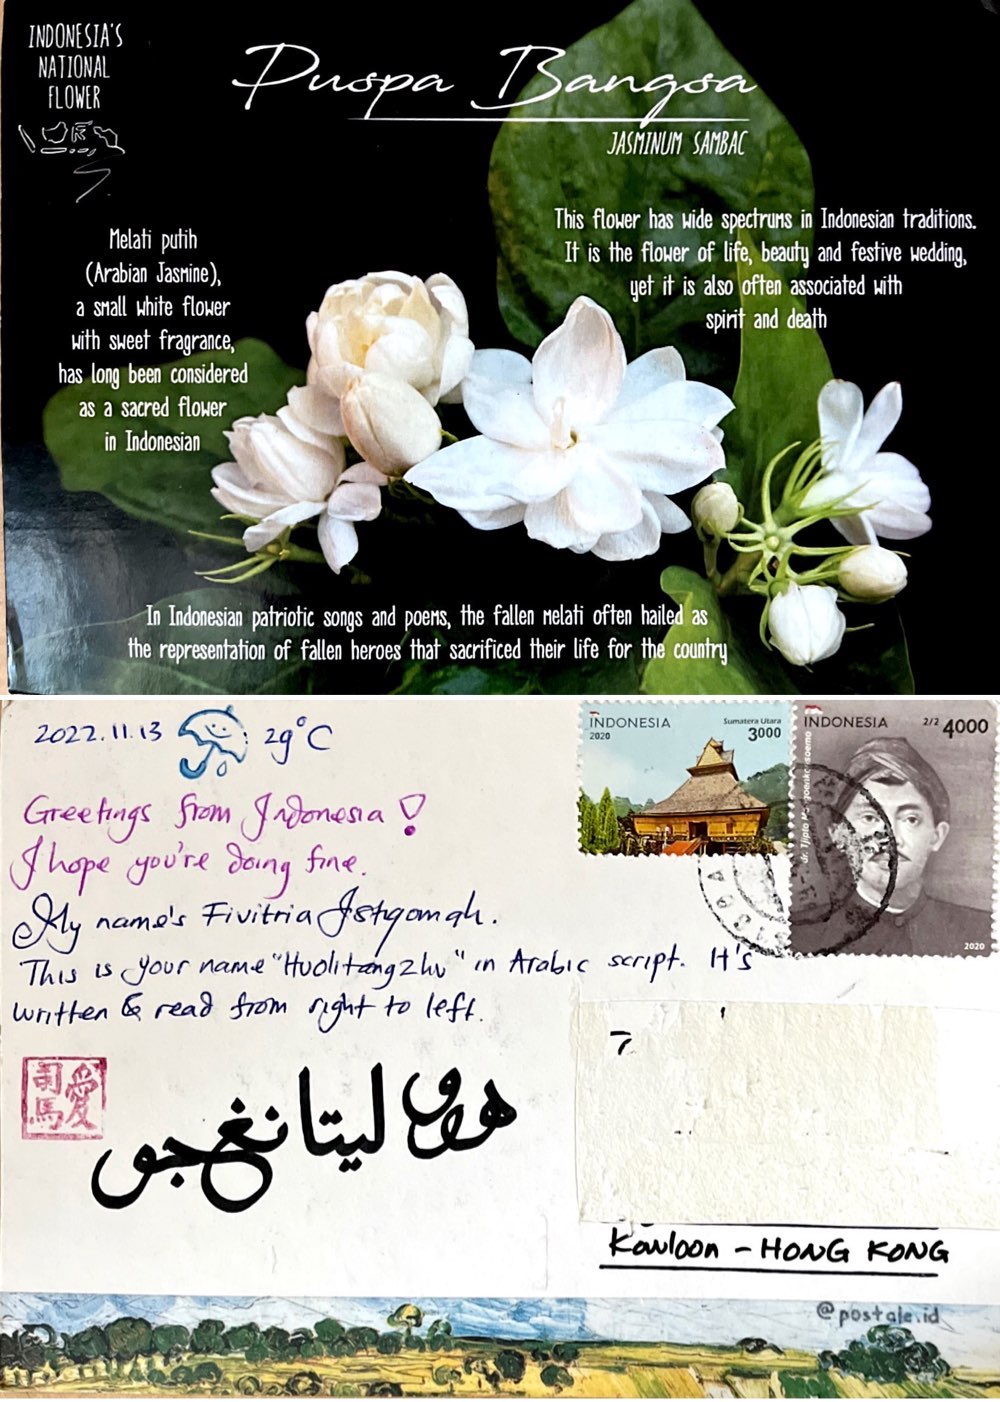 INDONESIA'S
NATIONAL
FLOWER
Puspa Bangsa
JASMINUM SAMBAC
Melati putih
(Arabian Jasmine),
a small white flower
with sweet fragrance,
has long been considered
as a sacred flower
in Indonesian
This flower has wide spectrums in Indonesian traditions.
It is the flower of life, beauty and festive wedding,
yet it is also often associated with
spirit and death
In Indonesian patriotic songs and poems, the fallen melati often hailed as
the representation of fallen heroes that sacrificed their life for the country
2022.11.13 29°C
Greetings from Indonesia!
I hope you're doing fine.
My name's Fivitria Istiqomah.
This is your name "Huolitangzhu" in Arabic script. It's
written & read from right to left.
INDONESIA
2020
Sumatera Utara
3000
INDONESIA
2/2 4000
dr. Tjipto
2020
司馬
愛
هوو ليتانغجو
7
Kowloon - HONG KONG
@postale.id